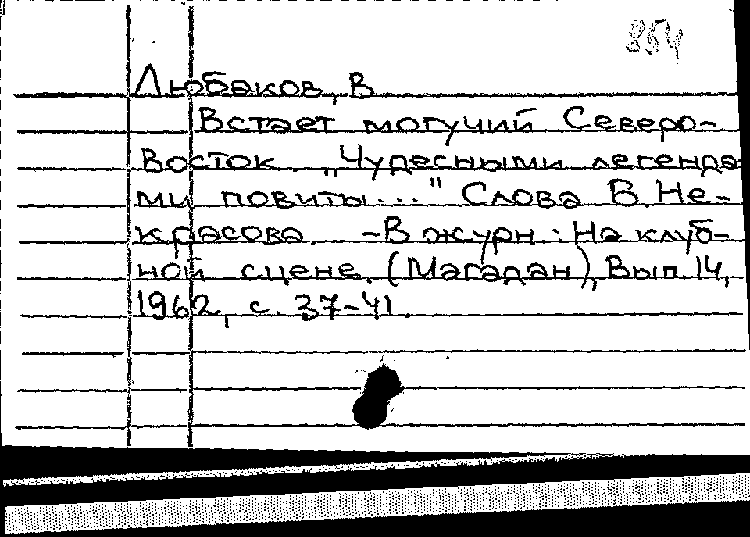 854
Любаков, В
Встает могучий Северо-
Восток. „Чудесными легенда
ми повиты..." Слова В. Не-
красова. - В журн.: На клуб-
ной сцене. (Магадан), Вып. 14,
1962, с. 37-41.